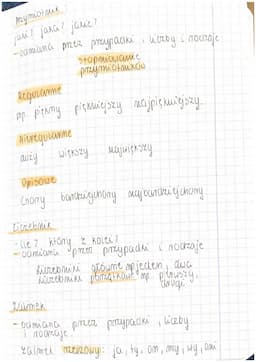 Przymiotnik
jaki? jaka? jakie?
- odmiana przez przypadki, liczby i rodzaje
stopniowanie
przymiotników
Regularne
np. piękny piękniejszy najpiękniejszy
Nieregularne
duży większy największy
Opisowe
chory bardziej chory najbardziej chory
Liczebnik
- ile? który z kolei?
- odmiana przez przypadki i rodzaje
liczebniki główne np. jeden, dwa
liczebniki porządkowe np. pierwszy,
drugi
Zaimek
- odmiana przez przypadki, liczby
i rodzaje
zaimek rzeczowny: ja, ty, on, my, wy, oni